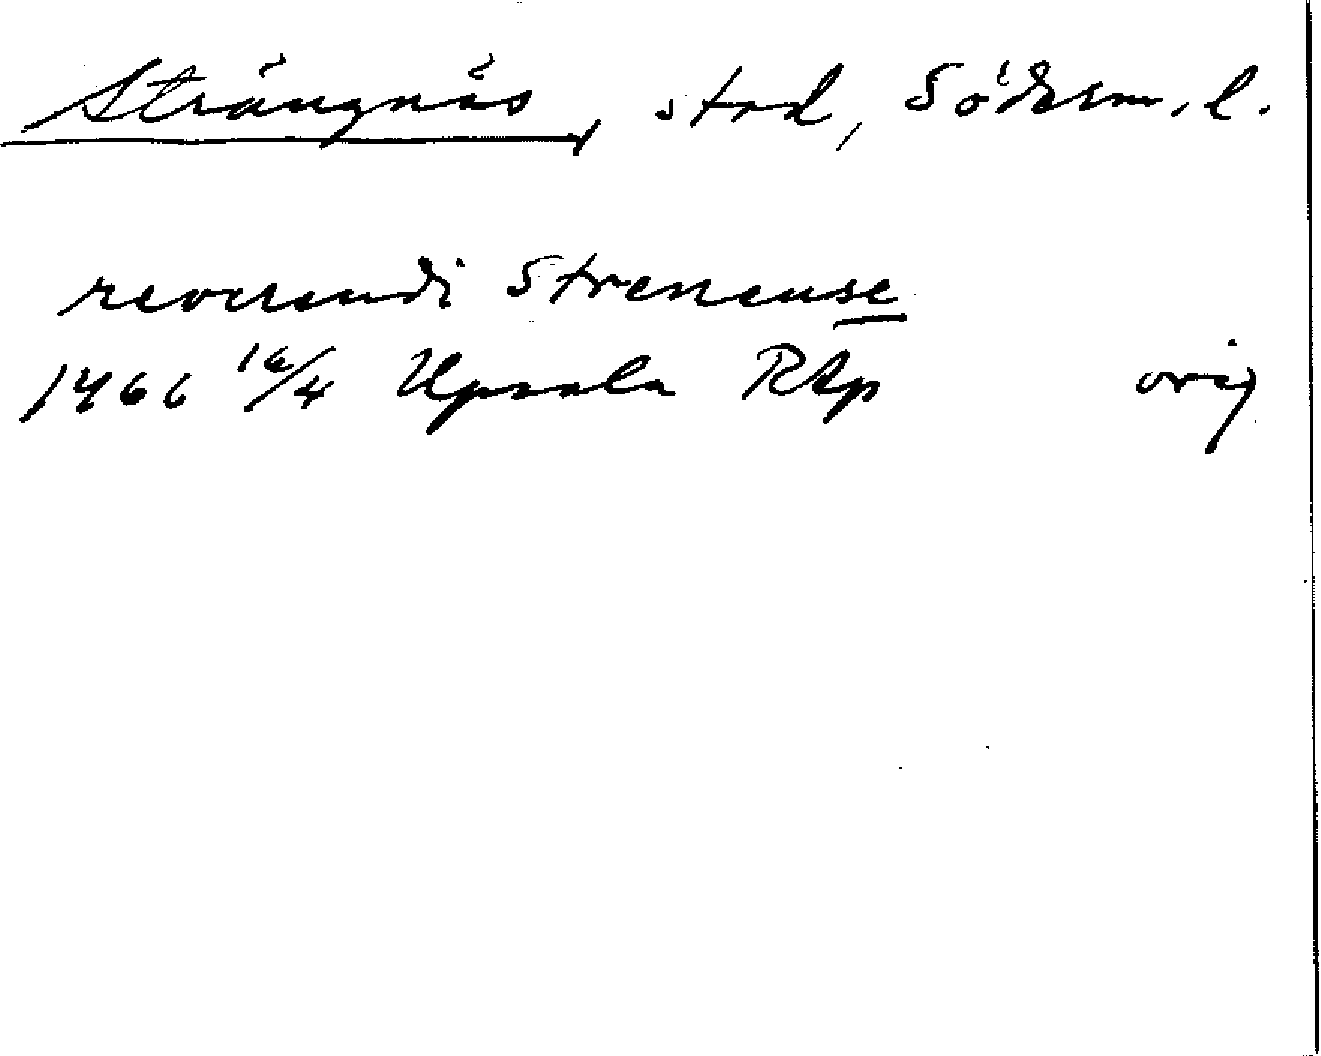 Strängnäs, std, Söderm. l.
reverendi Strenense
1466 16/4 Upsala RAp orig